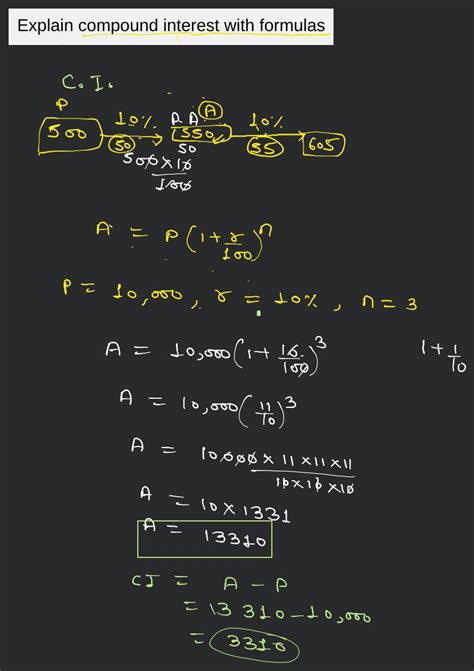 Explain compound interest with formulas
C.I.
P
10% P A A 10%
500 50 550 55 605
50
500×10
100
A = P(1+r/100)^n
P = 10,000, r = 10%, n = 3
A = 10,000(1+10/100)^3 1+1/10
A = 10,000(11/10)^3
A = 10,000×11×11×11
10×10×10
A = 10×1331
A = 13310
CI = A-P
= 13310-10,000
= 3310